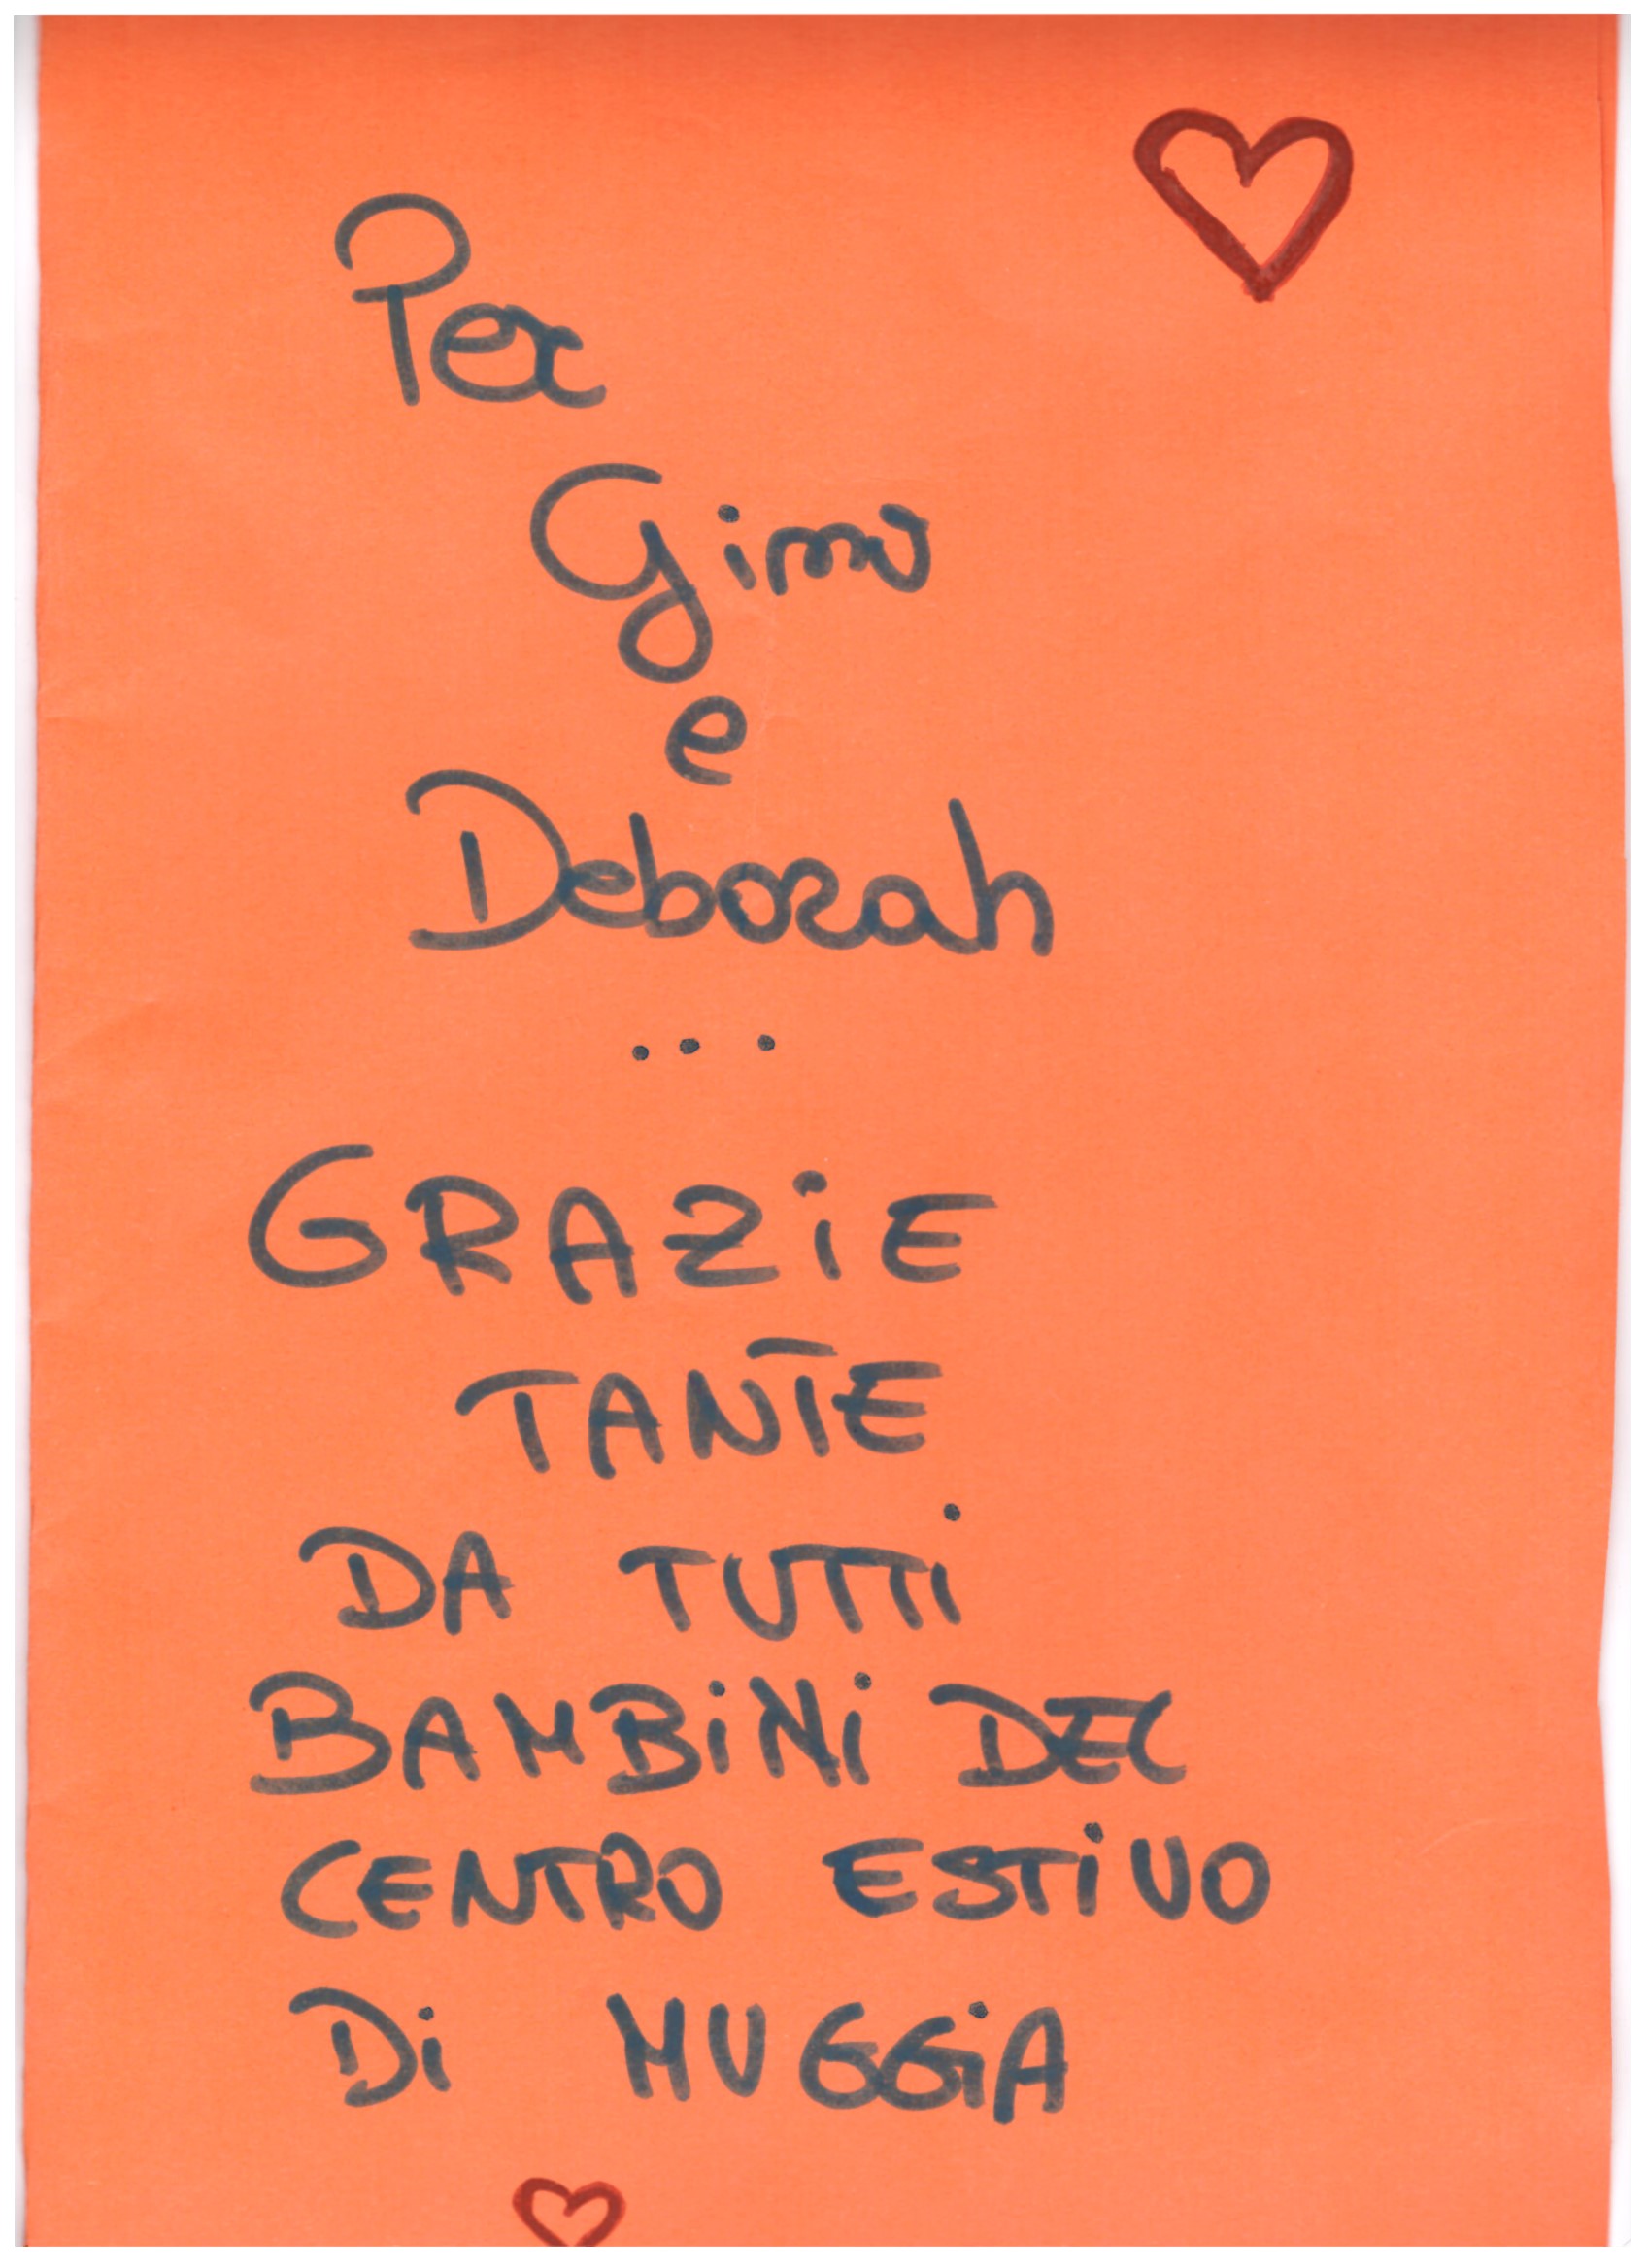 Per
Gino
e
Deborah
...
GRAZiE
TANTE
DA TUTTi
BAMBiNi DEL
CENTRO ESTiVO
Di MUGGiA